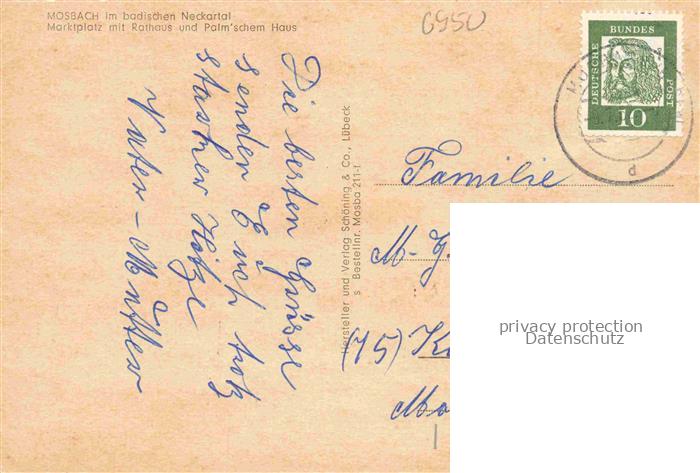 MOSBACH im badischen Neckartal
Marktplatz mit Rathaus und Palm'schem Haus
6950
DEUTSCHE BUNDES POST
10
Die besten Grüsse
sendet Euch trotz
starker Hitze
Vater – Mutter
Hersteller und Verlag Schöning & Co., Lübeck
s Bestellnr. Mosba 211-f
Familie
M- G
(75) K
Mo
d
privacy protection
Datenschutz